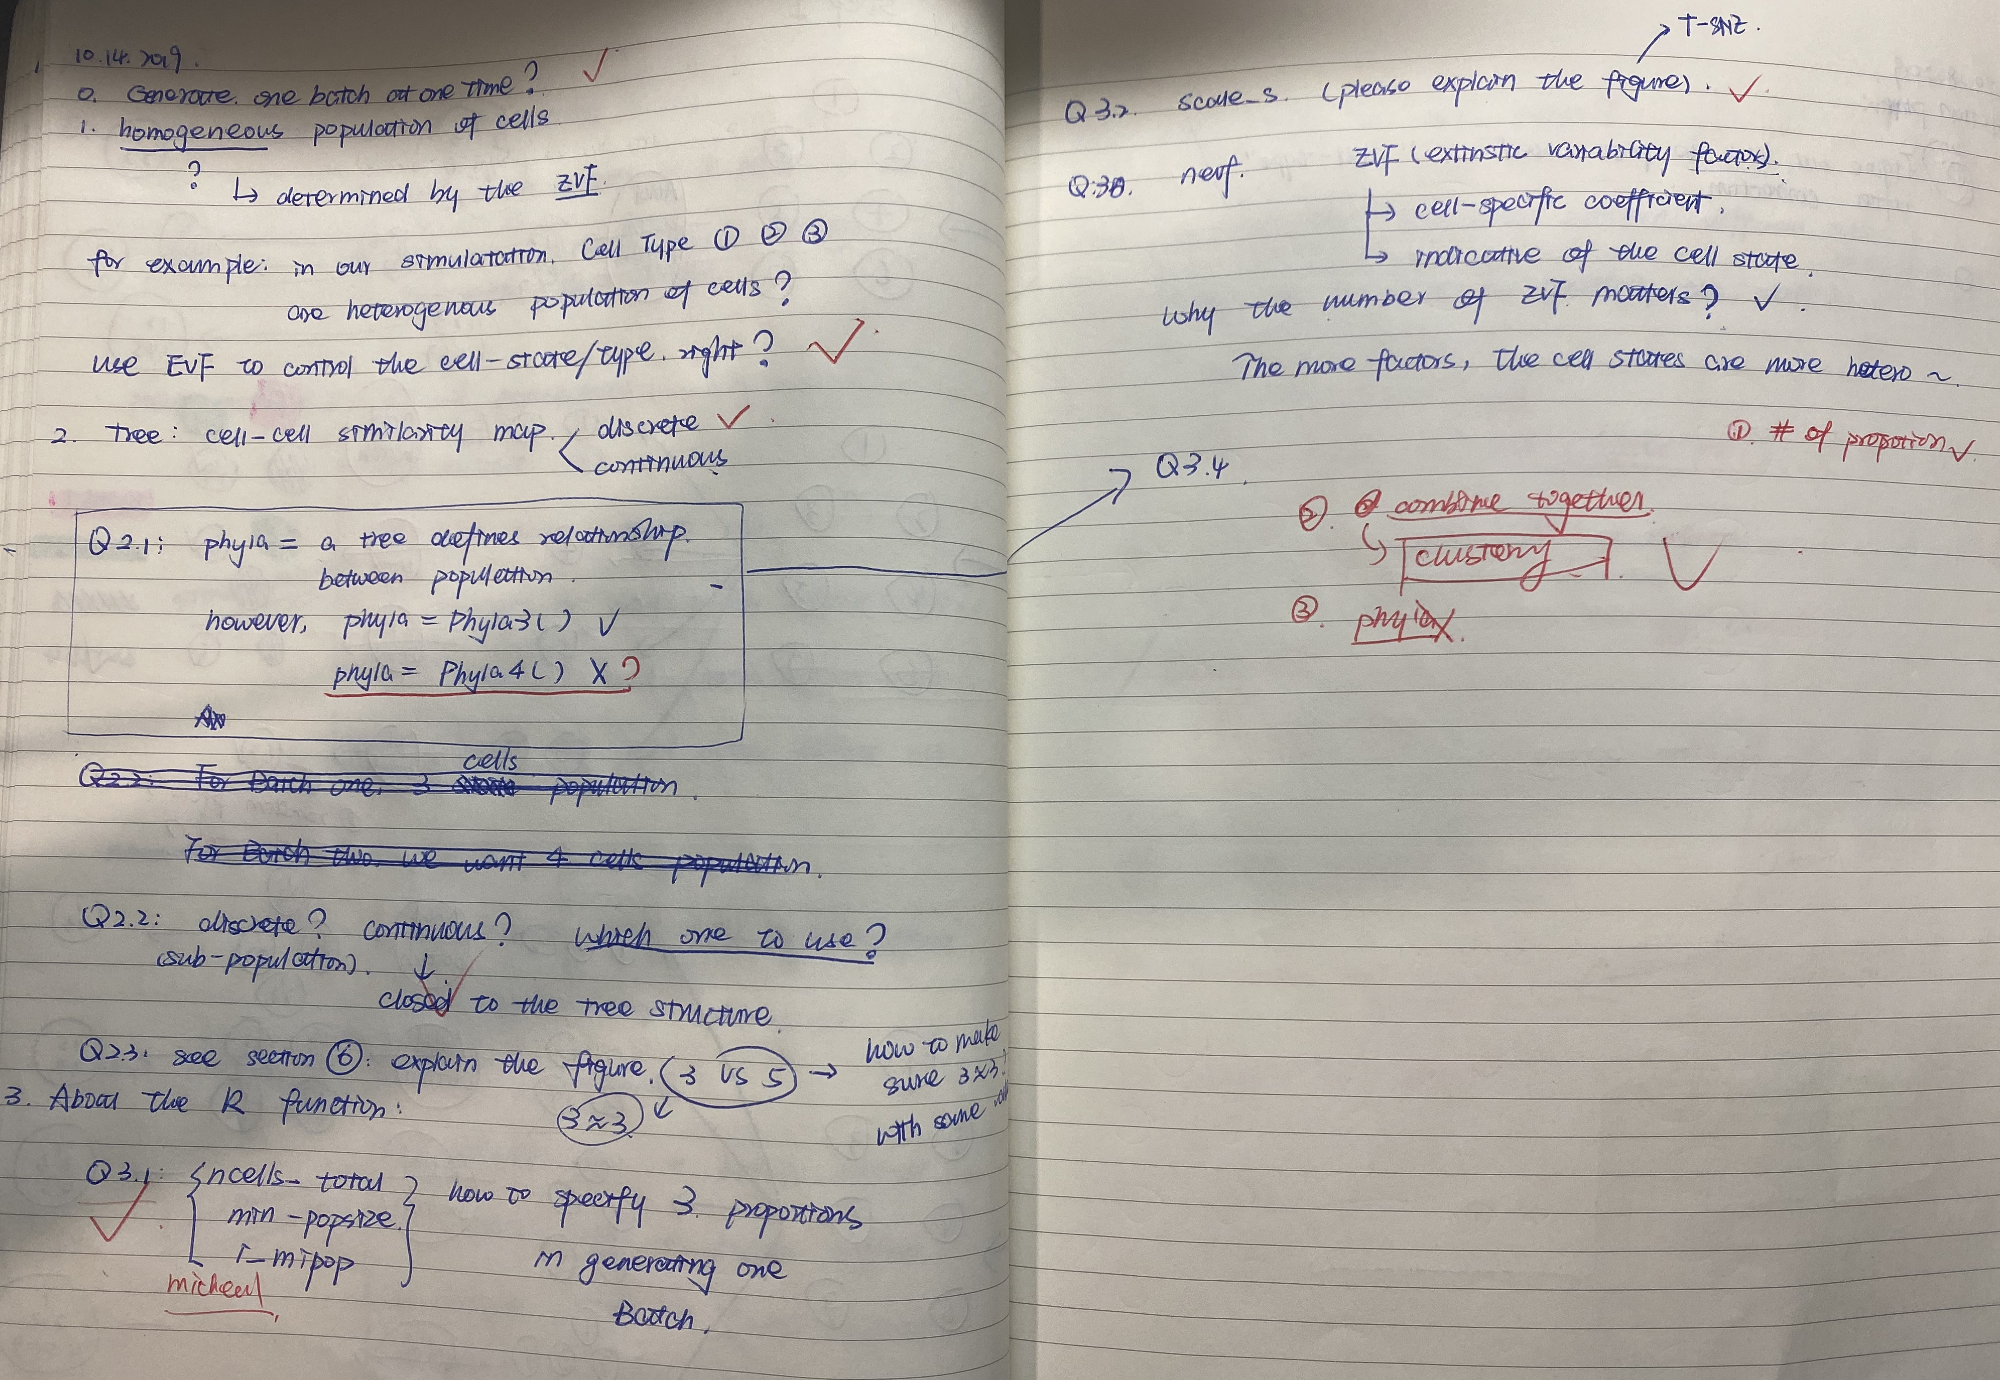 10.14.2019.
0. Generate one batch at one time? ✓
1. homogeneous population of cells
?
↳ determined by the ZVF.
for example: in our simulatation. Cell Type ① ② ③
are heterogenous population of cells?
use EVF to control the cell-state/type. right? ✓
2. Tree: cell-cell similarity map. discrete ✓
continuous
Q2.1: phyla = a tree defines relationship.
between population.
however, phyla = Phyla3() ✓
phyla = Phyla4() X ?
cells
Q2.2: For Batch one, 3 population.
For Batch two, we want 4 cells population.
Q2.2: discrete? continuous? which one to use?
(sub-population). ↓
closed to the tree structure.
Q2.3: see section ⑥: explain the figure. (3 vs 5) →
how to make
sure 3≈3?
with same
3≈3
3. About the R function:
Q3.1: { ncells_total
min-popsize.
i_mipop }
how to specify 3 proportions
in generating one
Batch.
micheal
T-SNZ.
Q3.2. scale_s. (please explain the figure). ✓
Q:3. nevf. ZVF (extinstic variability factor).
↳ cell-specific coefficient.
↳ indicative of the cell state.
why the number of ZVF matters? ✓
The more factors, the cell states are more hetero ~.
①. # of propotion ✓
Q3.4
②. combine together.
↳ clusterny ✓
③. phyla X.